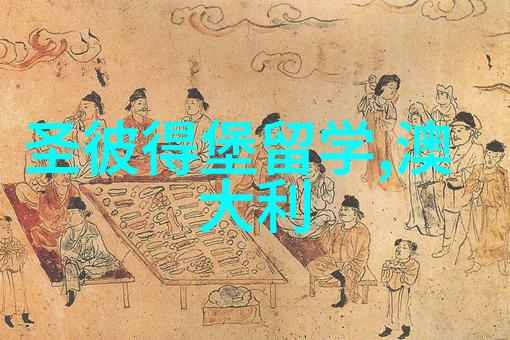 圣彼得堡留学,澳
大利